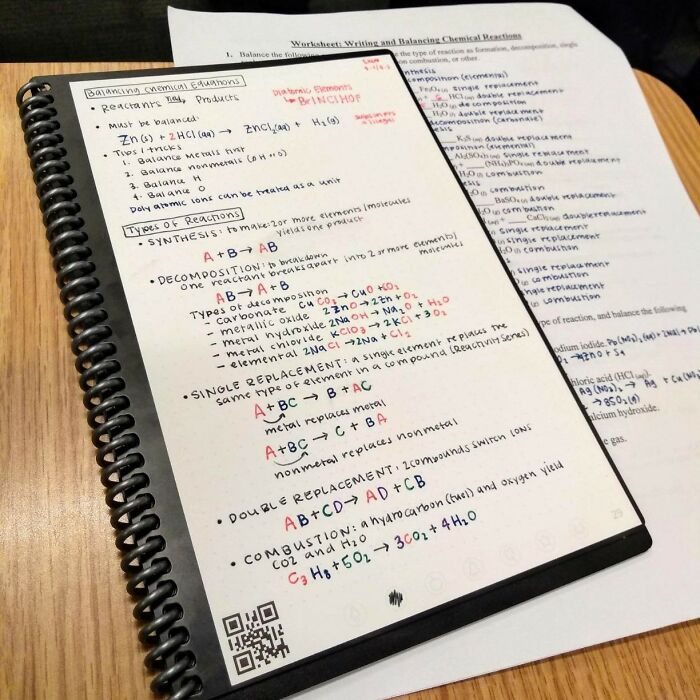 Balancing Chemical Equations
• Reactants Yield Products
Diatomic Elements
↳ BrINClHOF
• Must be balanced
Zn(s) + 2HCl(aq) → ZnCl₂(aq) + H₂(g)
• Tips/tricks
1. Balance metals first
2. Balance nonmetals
3. Balance H
4. Balance O
Polyatomic ions can be treated as a unit
Types of Reactions
• SYNTHESIS: to make 2 or more elements/molecules
yields one product
A + B → AB
• DECOMPOSITION: to breakdown
one reactant breaks apart into 2 or more elements/
molecules
AB → A + B
Types of decomposition
- carbonate CuCO₃ → CuO + CO₂
- metallic oxide 2ZnO → 2Zn + O₂
- metal hydroxide 2NaOH → Na₂O + H₂O
- metal chloride KClO₃ → 2KCl + 3O₂
- elemental 2NaCl → 2Na + Cl₂
• SINGLE REPLACEMENT: a single element replaces the
same type of element in a compound (Reactivity Series)
A + BC → B + AC
metal replaces metal
A + BC → C + BA
nonmetal replaces nonmetal
• DOUBLE REPLACEMENT: 2 compounds switch IONS
AB + CD → AD + CB
• COMBUSTION: a hydrocarbon (fuel) and oxygen yield
CO2 and H2O
C₃H₈ + 5O₂ → 3CO₂ + 4H₂O
29
Worksheet: Writing and Balancing Chemical Reactions
1. Balance the following the type of reaction as formation, decomposition, single
on combustion, or other.
nthesis
composition (elemental)
Fe₂O₃ single replacement
HCl double replacement
H₂O decomposition
decomposition (carbonate)
K₂S double replacement
Al₂(SO₄)₃ single replacement
(NH₄)₃PO₄ double replacement
H₂O combustion
combustion
BaSO₄ double replacement
combustion
CaCl₂ double replacement
single replacement
single replacement
combustion
single replacement
combustion
single replacement
combustion
pe of reaction, and balance the following
odium iodide
hloric acid (HCl
alcium hydroxide.
e gas.